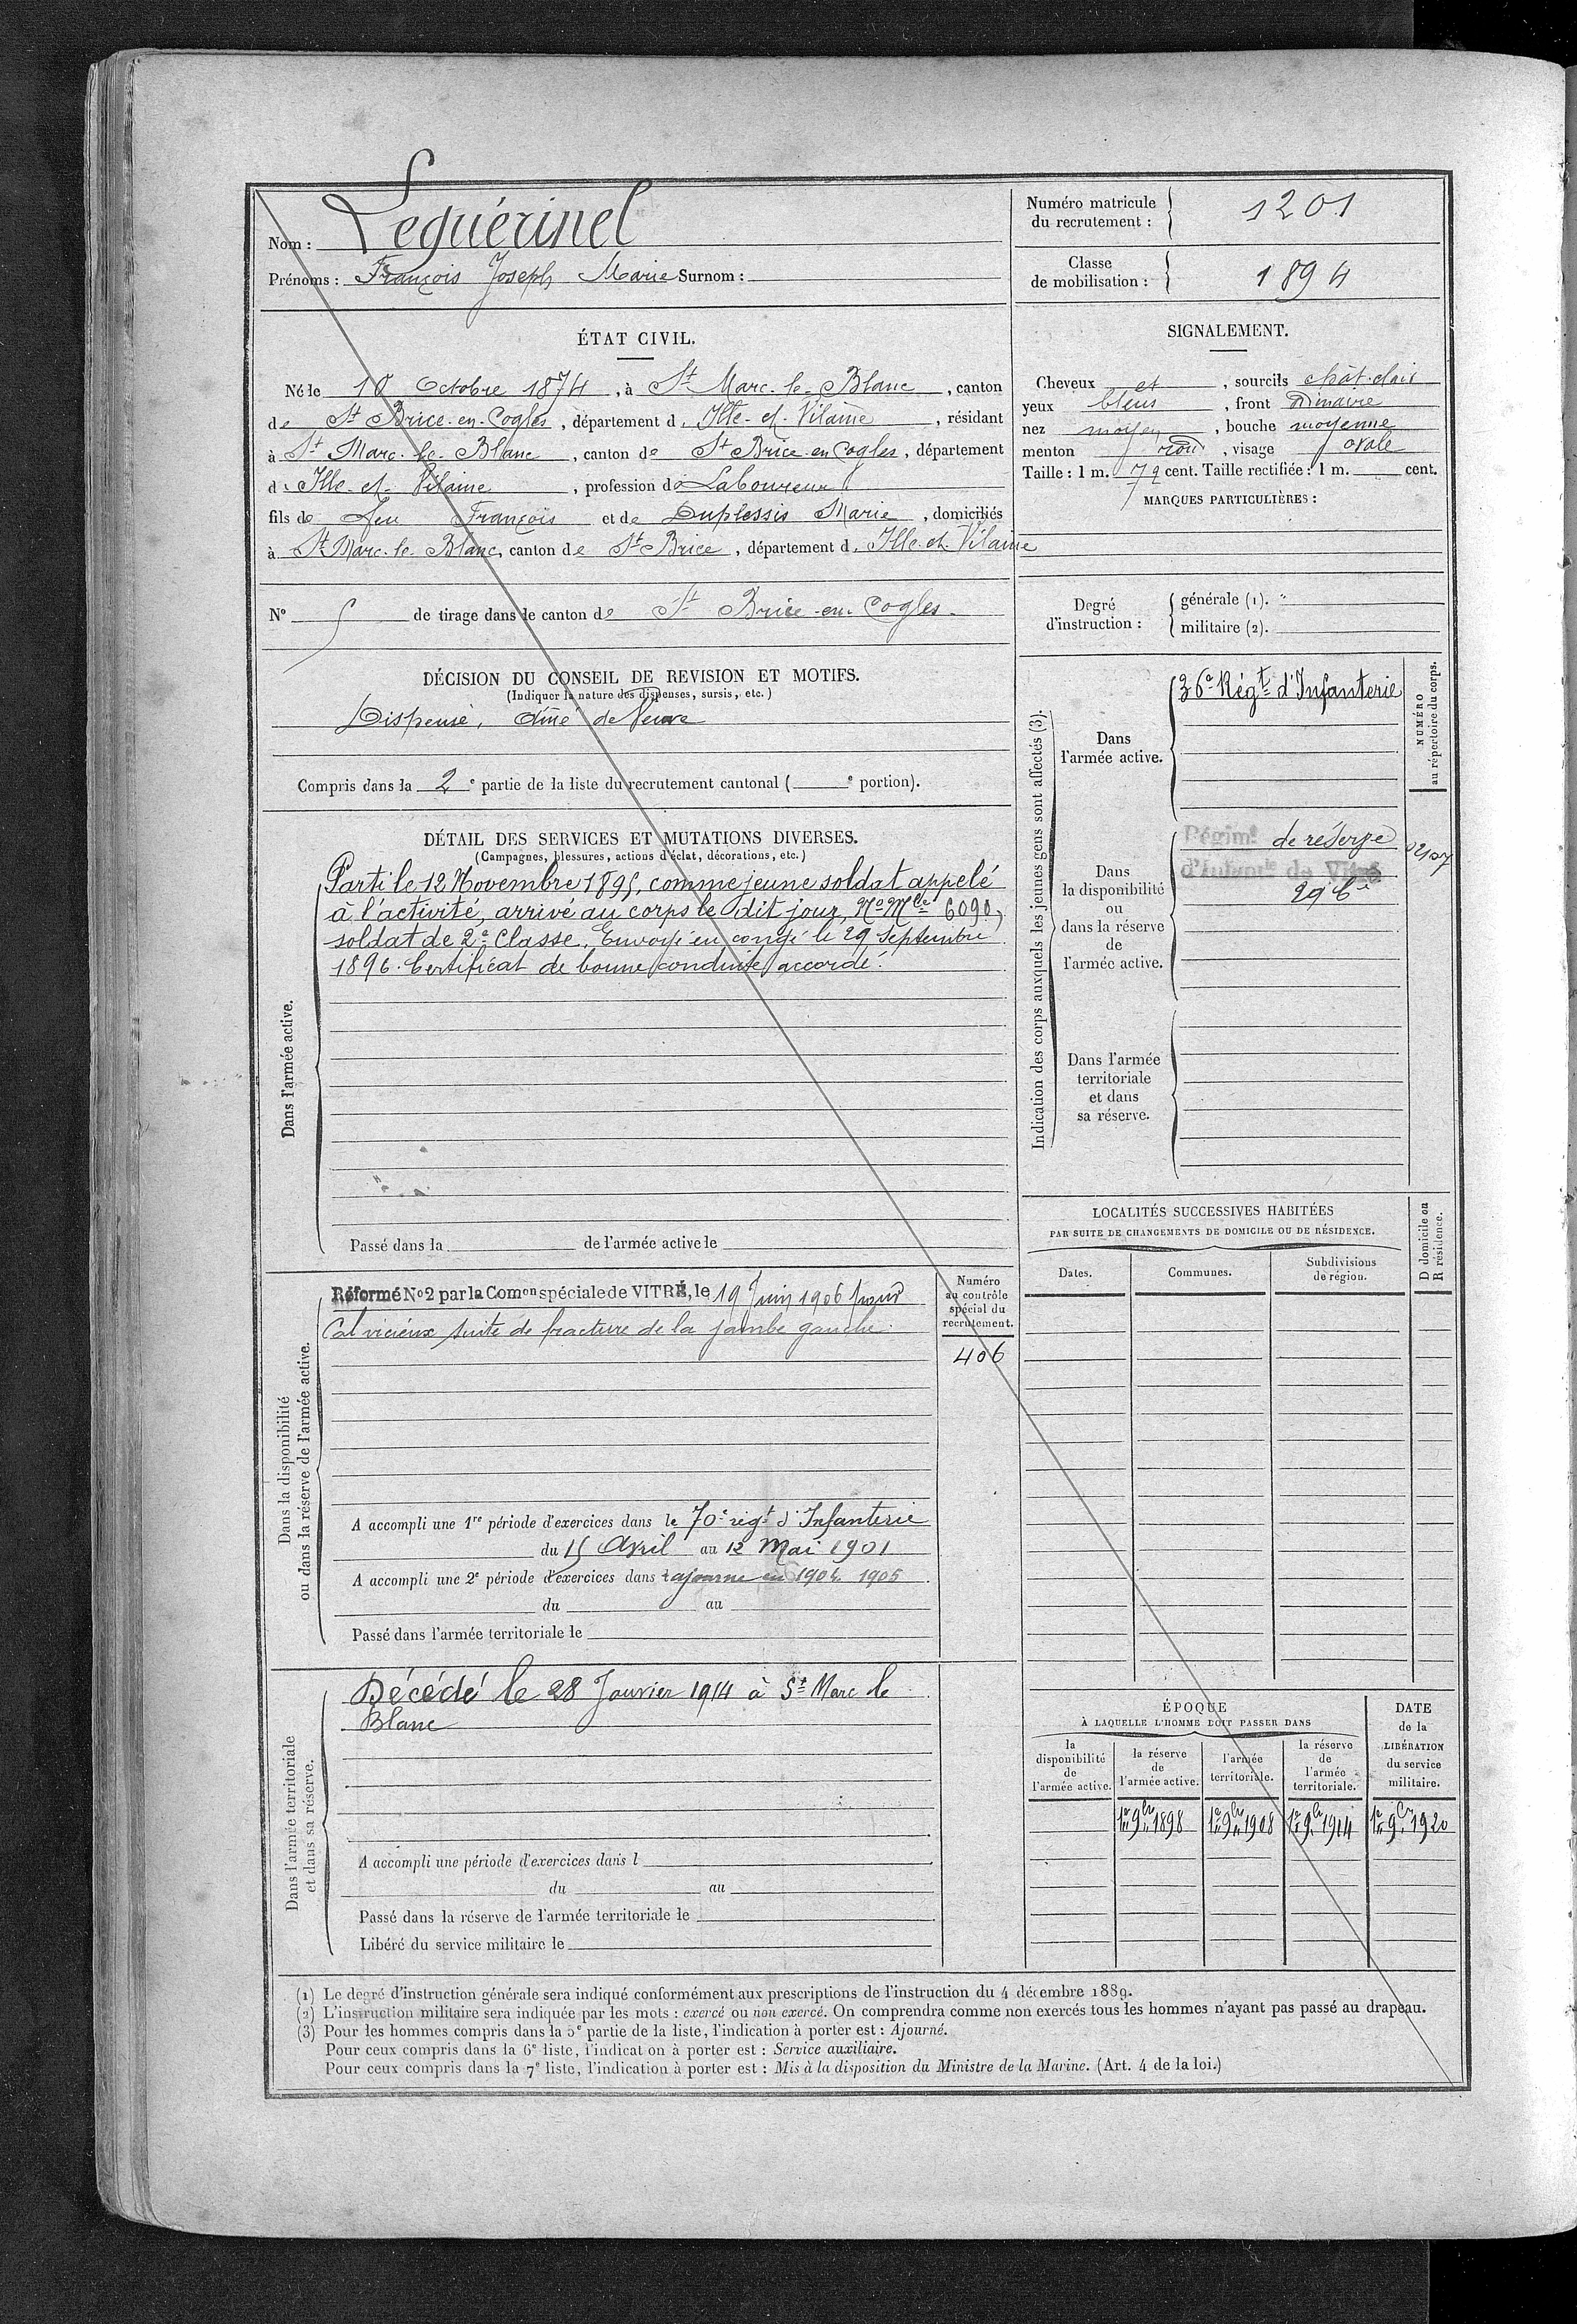 Nom : Leguérinel
Prénoms : François Joseph Marie Surnom :
Numéro matricule du recrutement : 1201
Classe de mobilisation : 1894
ÉTAT CIVIL.
Né le 10 Octobre 1874, à St Marc-le-Blanc, canton
de St Brice-en-Cogles, département d. Ille-et-Vilaine, résidant
à St Marc-le-Blanc, canton de St Brice-en-Cogles, département
d. Ille-et-Vilaine, profession de Laboureur
fils de feu François et de Duplessis Marie, domiciliés
à St Marc-le-Blanc, canton de St Brice, département d. Ille-et-Vilaine
N° 5 de tirage dans le canton de St Brice-en-Cogles.
DÉCISION DU CONSEIL DE REVISION ET MOTIFS.
(Indiquer la nature des dispenses, sursis, etc.)
Dispensé, aîné de Veuve
Compris dans la 2e partie de la liste du recrutement cantonal ( e portion).
SIGNALEMENT.
Cheveux et, sourcils chât-clair
yeux bleus, front
nez moyen, bouche moyenne
menton rond, visage ovale
Taille : 1 m. 72 cent. Taille rectifiée : 1 m. cent.
MARQUES PARTICULIÈRES :
Degré d'instruction : générale (1). "
militaire (2).
DÉTAIL DES SERVICES ET MUTATIONS DIVERSES.
(Campagnes, blessures, actions d'éclat, décorations, etc.)
Dans l'armée active.
Parti le 12 Novembre 1895, comme jeune soldat appelé
à l'activité, arrivé au corps le dit jour, No Mle 6090,
soldat de 2e Classe. Envoyé en congé le 29 Septembre
1896. Certificat de bonne conduite accordé.
Passé dans la de l'armée active le
Indication des corps auxquels les jeunes gens sont affectés (3).
NUMÉRO au répertoire du corps.
Dans l'armée active.
36e Régt d'Infanterie
Dans la disponibilité ou dans la réserve de l'armée active.
Régimt de réserve
d'Infantie de Vitré
Dans l'armée territoriale et dans sa réserve.
LOCALITÉS SUCCESSIVES HABITÉES
PAR SUITE DE CHANGEMENTS DE DOMICILE OU DE RÉSIDENCE.
Dates. Communes. Subdivisions de région.
D domicile ou R résidence.
Dans la disponibilité ou dans la réserve de l'armée active.
Réformé No2 par la Comon spéciale de VITRÉ, le 19 Juin 1906 pour
Cal vicieux suite de fracture de la jambe gauche.
Numéro au contrôle spécial du recrutement.
406
A accompli une 1re période d'exercices dans le 70e régt d'Infanterie
du 15 Avril au 12 Mai 1901
A accompli une 2e période d'exercices dans 1905
du au
Passé dans l'armée territoriale le
Dans l'armée territoriale et dans sa réserve.
Décédé le 28 Janvier 1914 à St Marc le
Blanc
A accompli une période d'exercices dans l
du au
Passé dans la réserve de l'armée territoriale le
Libéré du service militaire le
ÉPOQUE
À LAQUELLE L'HOMME DOIT PASSER DANS
la disponibilité de l'armée active.
la réserve de l'armée active.
l'armée territoriale.
la réserve de l'armée territoriale.
DATE de la LIBÉRATION du service militaire.
1er 9bre 1898 1er 9bre 1908 1er 9bre 1914 1er 9bre 1920
(1) Le degré d'instruction générale sera indiqué conformément aux prescriptions de l'instruction du 4 décembre 1889.
(2) L'instruction militaire sera indiquée par les mots : exercé ou non exercé. On comprendra comme non exercés tous les hommes n'ayant pas passé au drapeau.
(3) Pour les hommes compris dans la 5e partie de la liste, l'indication à porter est : Ajourné.
Pour ceux compris dans la 6e liste, l'indication à porter est : Service auxiliaire.
Pour ceux compris dans la 7e liste, l'indication à porter est : Mis à la disposition du Ministre de la Marine. (Art. 4 de la loi.)